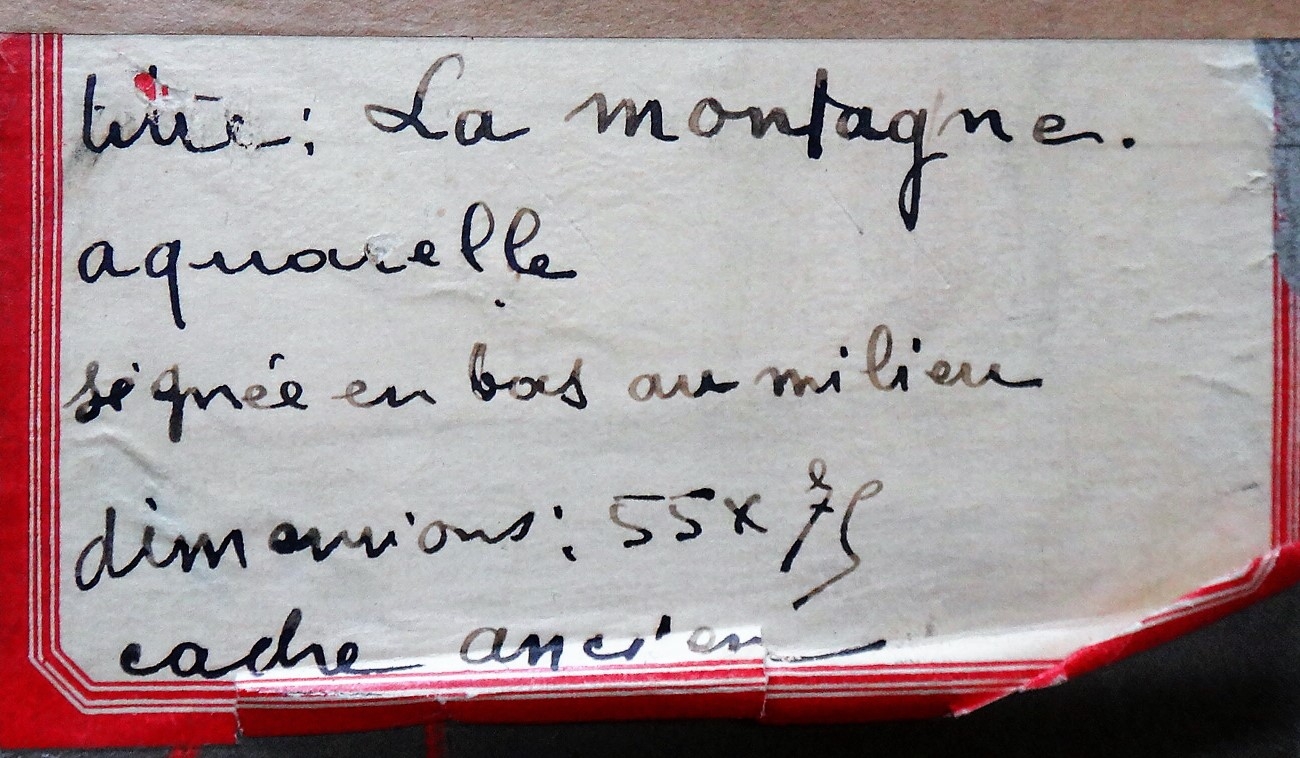 titre: La montagne.
aquarelle
signée en bas au milieu
dimensions: 55 x 75
cadre ancien